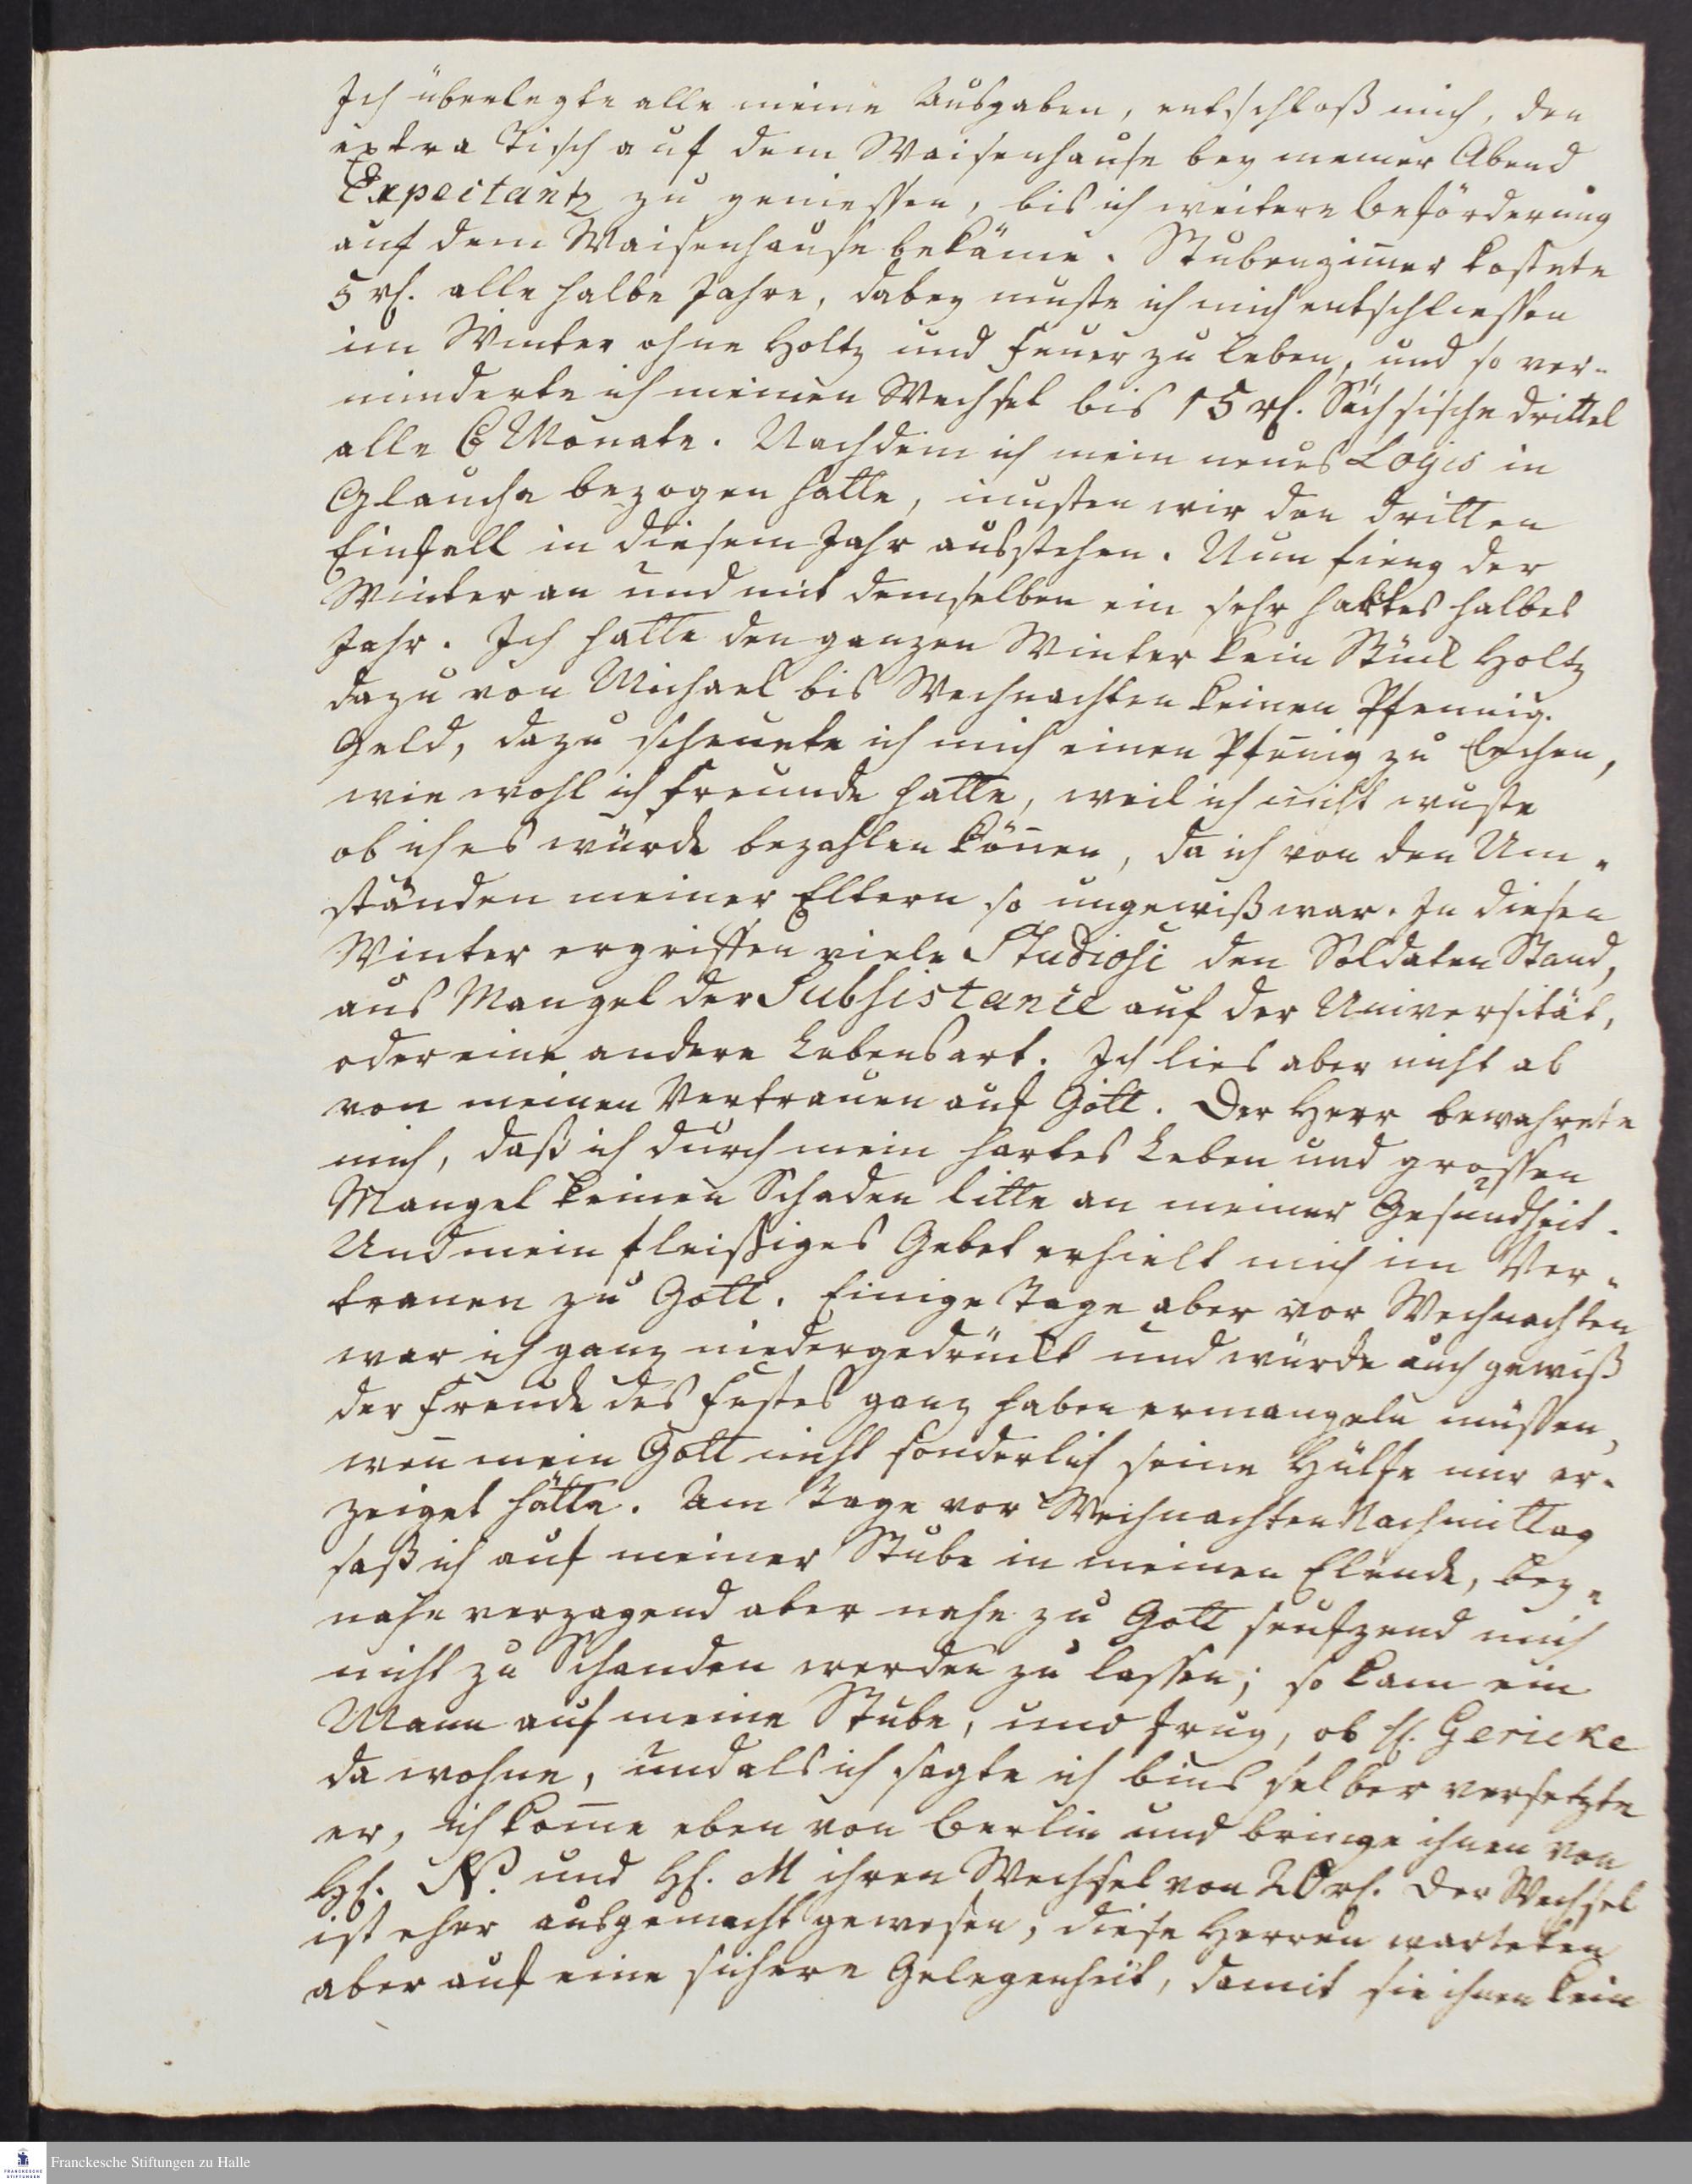 Ich überlegte alle meine Ausgaben, entschloß mich, den
extra Tisch auf dem Waisenhause bey meiner Abend
Expectantz zu geniessen, bis ich weitere Beförderung
auf dem Waisenhause bekäme. Stubenzim̅er kostete
5 rh. alle halbe Jahre, dabey muste ich mich entschliessen
im Winter ohne Holtz und Feuer zu leben, und so ver-
minderte ich meinen Wechsel bis 15 rh. Sächsische drittel
alle 6 Monate. Nachdem ich mein neues Logis in
Glaucha bezogen hatte, musten wir den dritten
Einfall in diesem Jahr ausstehen. Nun fieng der
Winter an und mit demselben ein sehr hartes halbes
Jahr. Ich hatte den ganzen Winter kein Stück Holtz
dazu von Michael bis Weihnachten keinen Pfennig.
Geld, dazu scheuete ich mich einen Pfen̅ig zu leyhen,
wie wohl ich Freunde hatte, weil ich nicht wuste
ob ich es würde bezahlen kön̅en, da ich von den Um-
ständen meiner Eltern so ungewiß war. In diesen
Winter ergriffen viele Studiosi den Soldaten Stand,
aus Mangel der Subsistance auf der Universität,
oder eine andere Lebensart. Ich lies aber nicht ab
von meinen Vertrauen auf Gott. Der Herr bewahrete
mich, daß ich durch mein hartes Leben und grossen
Mangel keinen Schaden litte an meiner Gesundheit.
Und mein fleißiges Gebet erhielt mich im Ver-
trauen zu Gott. Einige Tage aber vor Weihnachten
war ich ganz niedergedrückt und würde auch gewiß
der Freude des Festes ganz haben ermangeln müssen,
wen̅ mein Gott nicht sonderlich seine Hülfe mir er-
zeiget hätte. Am Tage vor Weihnachten Nachmittag
saß ich auf meiner Stube in meinen Elende, bey-
nahe verzagend aber nahe zu Gott seufzend mich
nicht zu Schanden werden zu lassen; so kam ein
Mann auf meine Stube, und frug, ob H. Gericke
da wohne, und als ich sagte ich bins selber versetzte
er, ich kom̅e eben von Berlin und bringe ihnen von
HH. N. und HH. M ihren Wechsel von 20 rh. Der Wechsel
ist eher ausgemacht gewesen, diese Herren warteten
aber auf eine sichere Gelegenheit, damit sie ihnen kein
Franckesche Stiftungen zu Halle
FRANCKESCHE
STIFTUNGEN